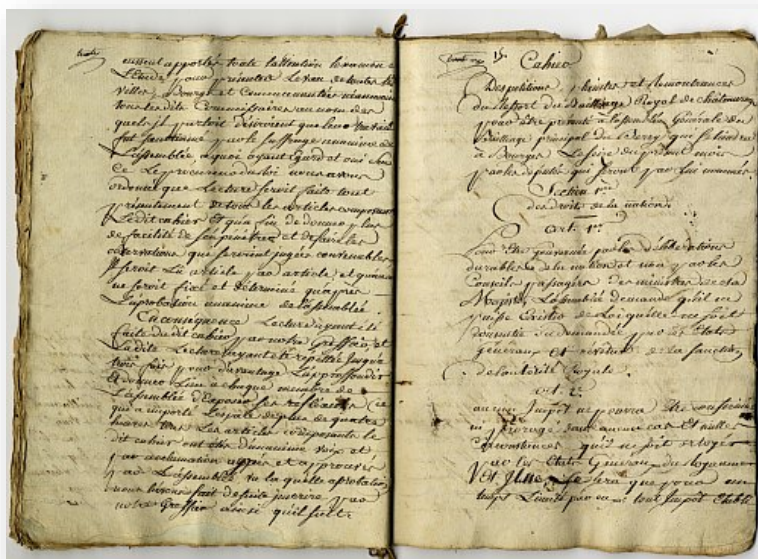 eussent apportés toute l'attention
L'Etude pour présenter Le vœu de toutes les
villes, Bourgs et Communautés néanmoins
tous les dits Commissaires au nom des
quels il parloit désiroient que leur travail
fut sanctionné par le suffrage unanime de
L'assemblée a quoi ayant égard et oui sur
ce Le procureur du Roi nous avons
ordonné que Lecture seroit faite tout
présentement de tous les articles composant
Ledit cahier et qu'a fin de donner plus
de facilité de s'en pénétrer et de faire les
observations que seroient jugées convenables
il seroit Lu article par article et qu'aucun
ne seroit fixé et déterminé qu'après
L'aprobation unanime de l'assemblée
En conséquence Lecture ayant été
faite du dit cahier par notre Greffier, et
La dite Lecture ayant été repettée jusqu'a
trois fois pour davantage L'approffondir
et donner Lieu a chaque membre de
L'assemblée d'Exposer ses réflexions (ce
qui a emporté L'espace de plus de quatre
heures tous Les articles composants le
dit cahier ont été d'unanime voix et
par acclamation agréés et approuvés
par L'assemblée vu la quelle aprobation
nous l'avons fait de suite inscrire par
notre Greffier ainsi qu'il suit.
Cahier
Des petitions, plaintes et Remontrances
du Ressort du Bailliage Royal de Châteauroux
pour être présenté a l'assemblée Générale du
Bailliage principal du Berry qui se tiendra
a Bourges Le seize du présent mois
par les députés qui seront par lui nommés
Section 1ere
des droits de la nation
art. 1er
Pour être gouvernée par les délibérations
durables de la nation et non par les
Conseils passagers des ministres de sa
Majesté, L'assemblée demande qu'il ne
puisse Exister de Loi qu'elle ne soit
consentie ou demandée par les États
Généraux et révêtue de la sanction
de l'autorité Royale.
art. 2e
aucun Impôt ne pourra être
ni prorogé sous aucun cas et nulles
Circonstances qu'il ne soit octroyé
par les Etats Généraux du Royaume
que pour un
temps Limité par eux tout Impôt établi